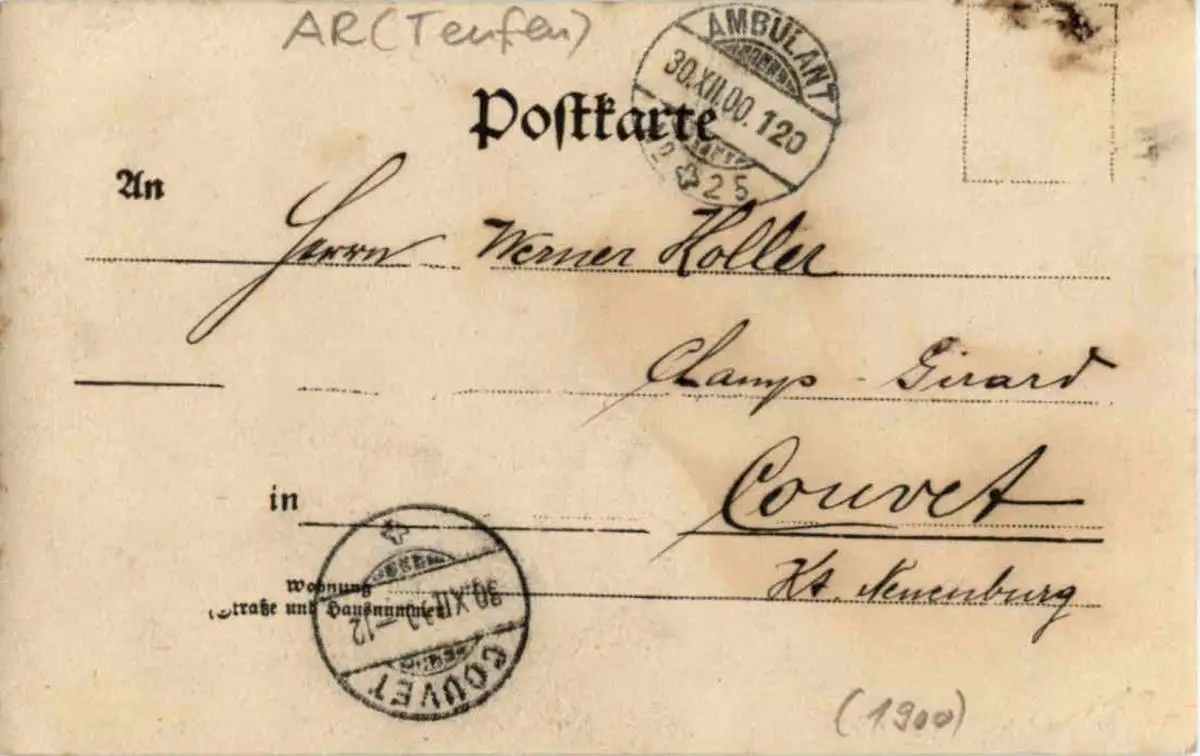 AR (Teufen)
AMBULANT
30.XII.00.120
25
Postkarte
An
Herrn Werner Holler
Champ-Girard
in Couvet
Wohnung
(Straße und Hausnummer)
Kt. Neuenburg
30.XII.00-12
COUVET
(1900)